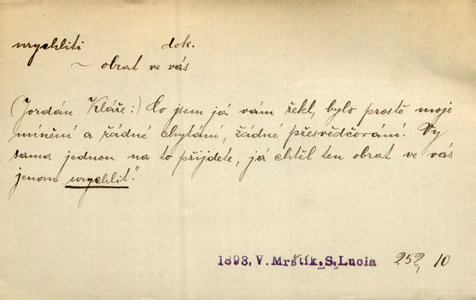 urychliti dok.
~ obrat ve vás
(Jordán Kláře:) Co jsem já vám řekl, bylo prostě moje
mínění a žádné chytání, žádné přesvědčování. Vy
sama jednou na to přijdete, já chtěl ten obrat ve vás
jenom urychlit."
1893. V. Mrštík, S. Lucia 252, 10